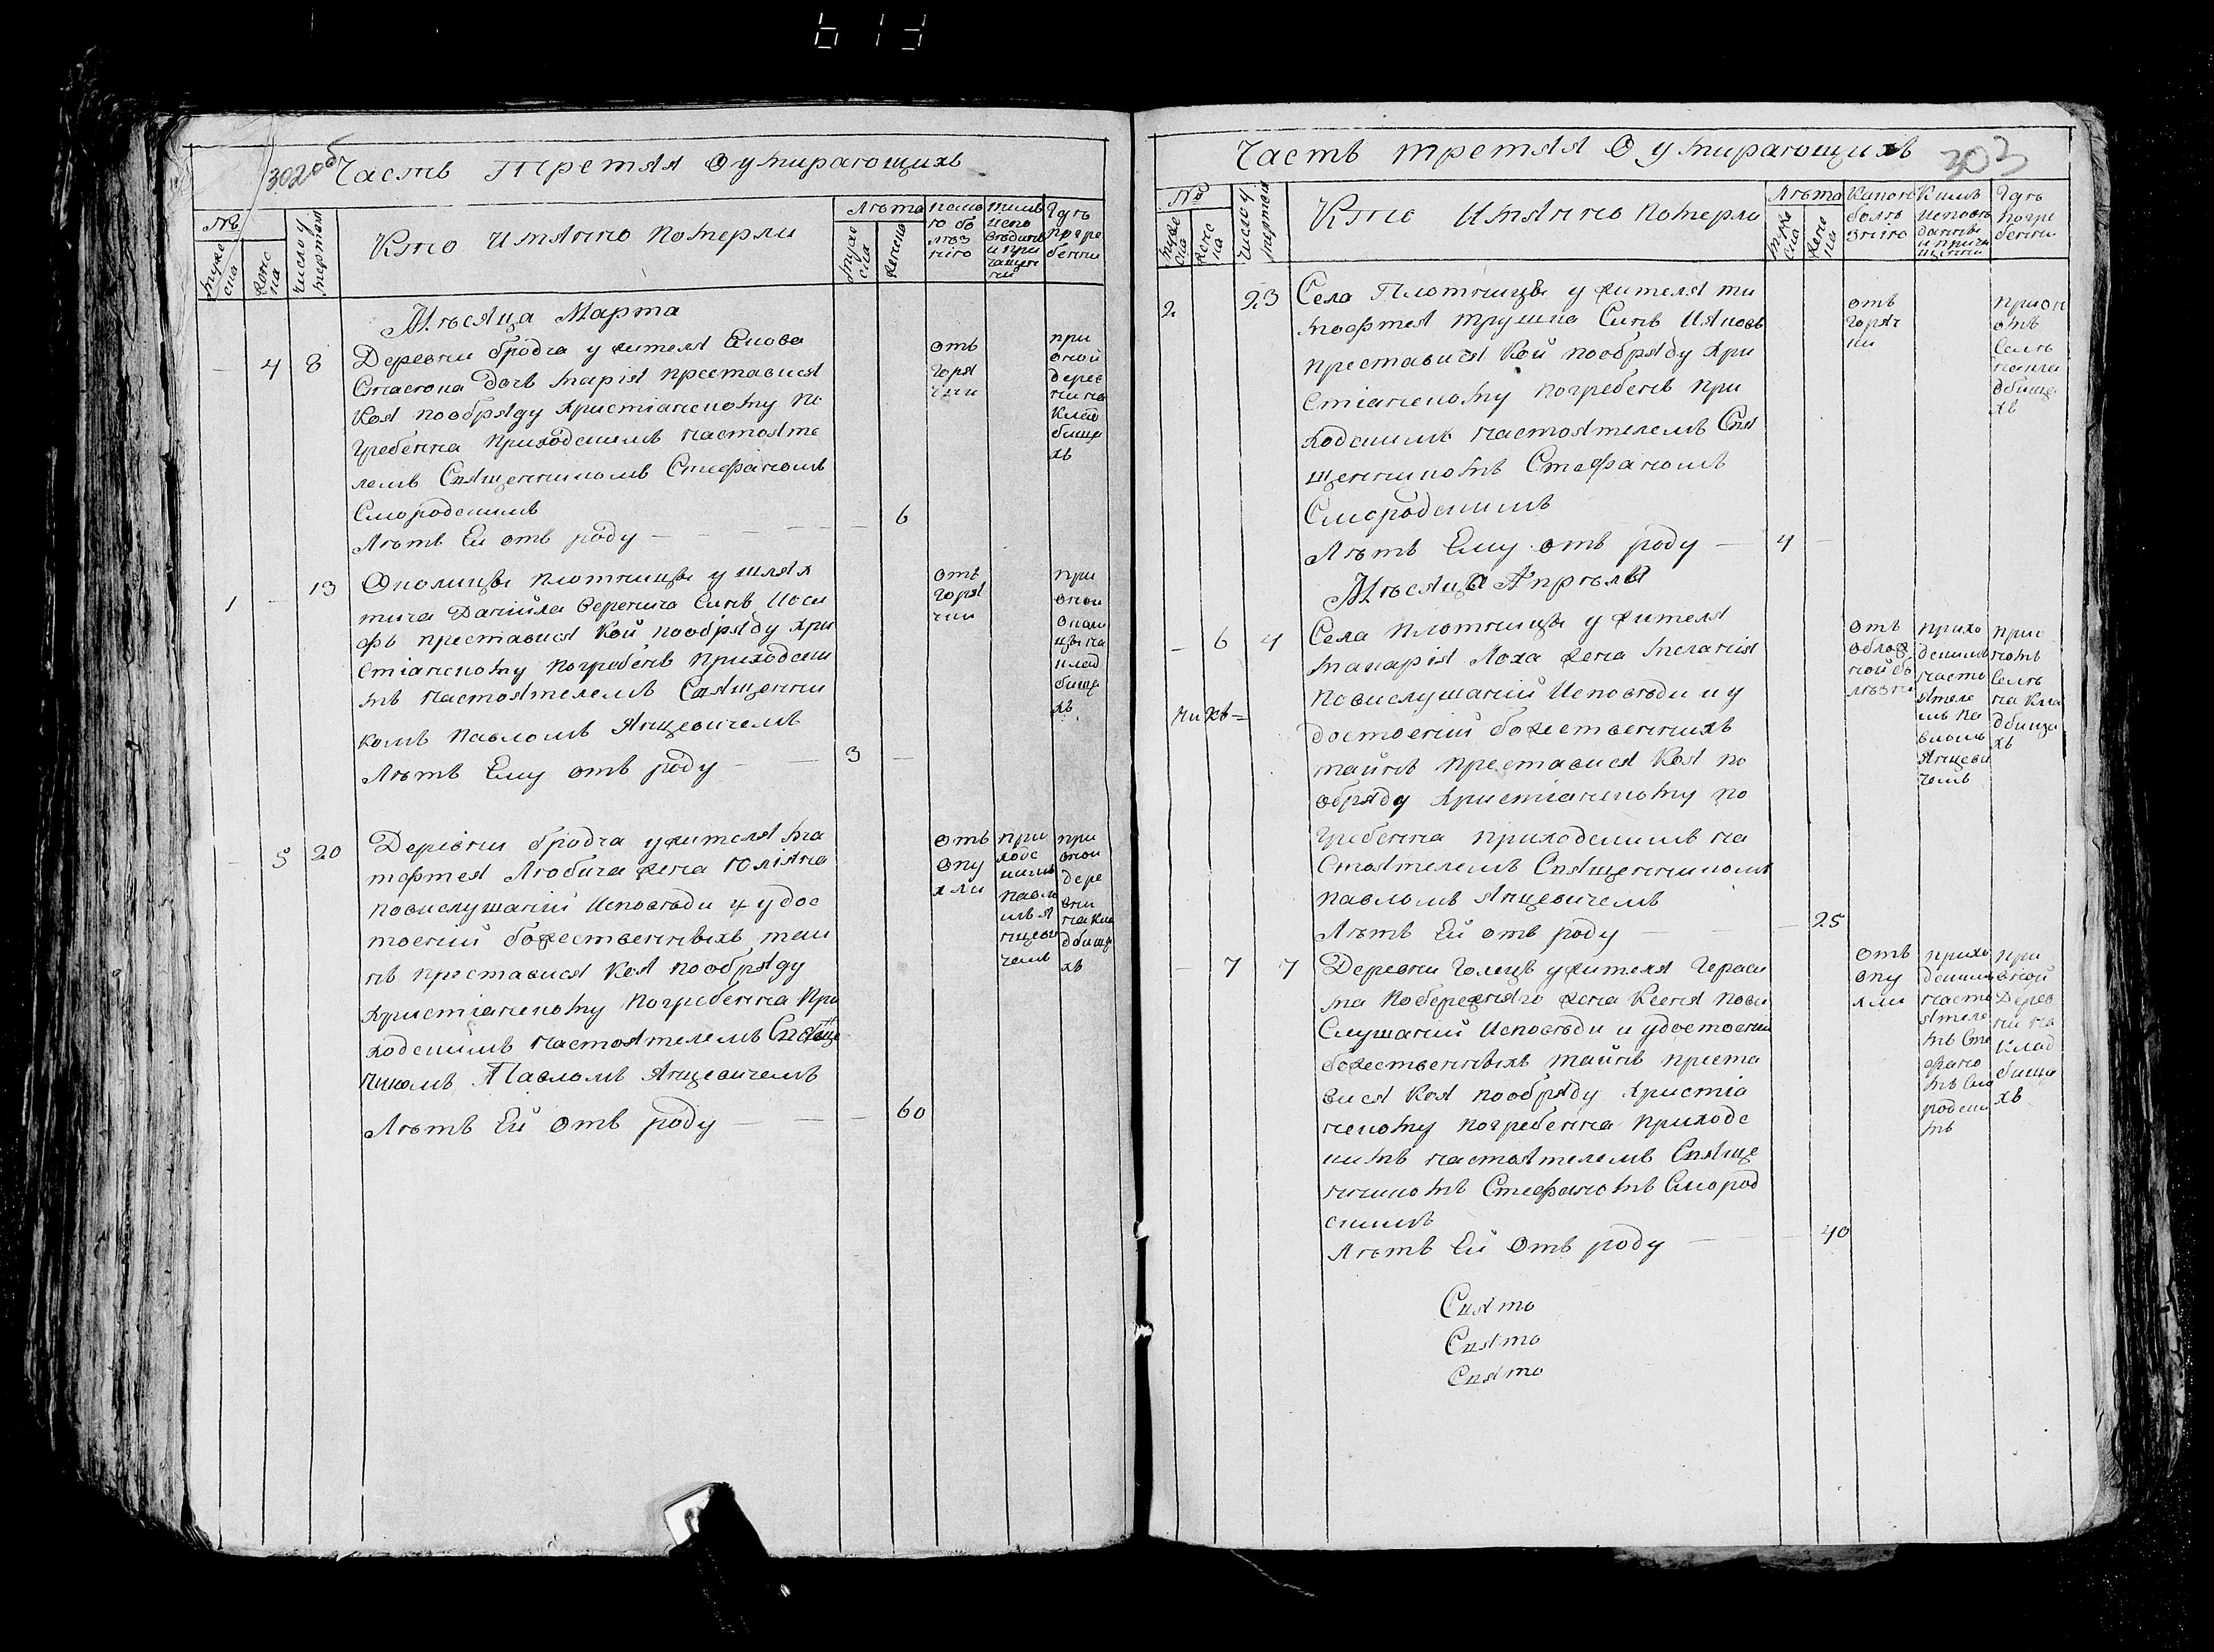 302об
Часть Третяя О умирающихъ
№
мужеска
женска
число умертвія
Кто имянно померли
Лѣта
мужеска
женска
какою болѣзнію
кимъ исповѣданъ и причащенни
Гдѣ погребенни
Мѣсяца Марта
4 8 Деревни бродча у жителя
дочь марія преставися
Коя пообряду христіанскому по
гребенна приходскимъ настояте
лемъ Священникомъ Стефаномъ
Смородскимъ
Лѣтъ Ей отъ роду 6
отъ
горя
чки
при
оной
дерев
ни на
клад
бища
хъ
1 13 Ополицѣ плотницѣ у шлях
тича Даніила веренича Синъ Иоси
фъ преставися Кой пообряду хри
стіанскому погребенъ приходски
мъ настоятелемъ Священни
комъ Павломъ Янцевичемъ
Лѣтъ Ему отъ роду 3
отъ
горя
чки
при
оной
ополи
цѣ на
клад
бища
хъ
5 20 Деревни бродча ужителя ма
тфея Любича жена Юліяна
повислушаніи Исповѣди и удос
тоеній божественныхъ таи
нъ преставися Коя пообряду
христіанскому погребенна при
ходскимъ настоятелемъ Свяще
нникомъ Павломъ Янцевичемъ
Лѣтъ Ей Отъ роду 60
отъ
опу
хли
при
ходс
кимъ
павло
мъ я
нцеви
чемъ
при
оной
дере
вни
на кла
дбища
хъ
Часть третяя О умирающихъ
303
№
мужеска
женска
число умертвія
Кто Имянно померли
Лѣта
мужеска
женска
Какою
болѣ
знію
Кимъ
исповѣ
данни
и прича
щенни
Гдѣ
погре
бенни
2 23 Села Плотницѣ у жителя ти
мофтея трушка Синъ Ияковъ
преставися Кой пообряду хри
стіанскому погребенъ при
ходскимъ настоятелемъ Свя
щенникомъ Стефаномъ
Смородскимъ
Лѣтъ Ему отъ роду 4
отъ
горяч
ки
при он
омъ
Селѣ
на кла
дбища
хъ
Мѣсяца Апрѣля
6 4 Села плотницѣ у жителя
макарія Лоха жена меланія
повислушаній Исповѣди и у
достоеній божественнихъ
тайнъ преставися Коя по
обряду христіанскому по
гребенна приходскимъ на
стоятелемъ Священникомъ
павломъ янцевичемъ
Лѣтъ Ей отъ роду 25
ни хъ=
отъ
облож
ной бо
лѣзни
прихо
дскимъ
насто
ятеле
мъ па
вломъ
янцеви
чемъ
при о
номъ
Селѣ
на кла
дбища
хъ
7 7 Деревни Голецъ ужителя Гераси
ма побережняго жена Ксеня пови
Слушаній Исповѣди и удостоеній
божественныхъ тайнъ преста
вися Коя пообряду христіа
нскому погребенна приходс
кимъ настоятелемъ Свяще
нникомъ Стефаномъ Смород
скимъ
Лѣтъ Ей Отъ роду 40
отъ
опу
хли
прихо
дскимъ
насто
ятеле
мъ Сте
фано
мъ Смо
родски
мъ
при
оной
Дерев
ни на
клад
бища
хъ
Свято
Свято
Свято